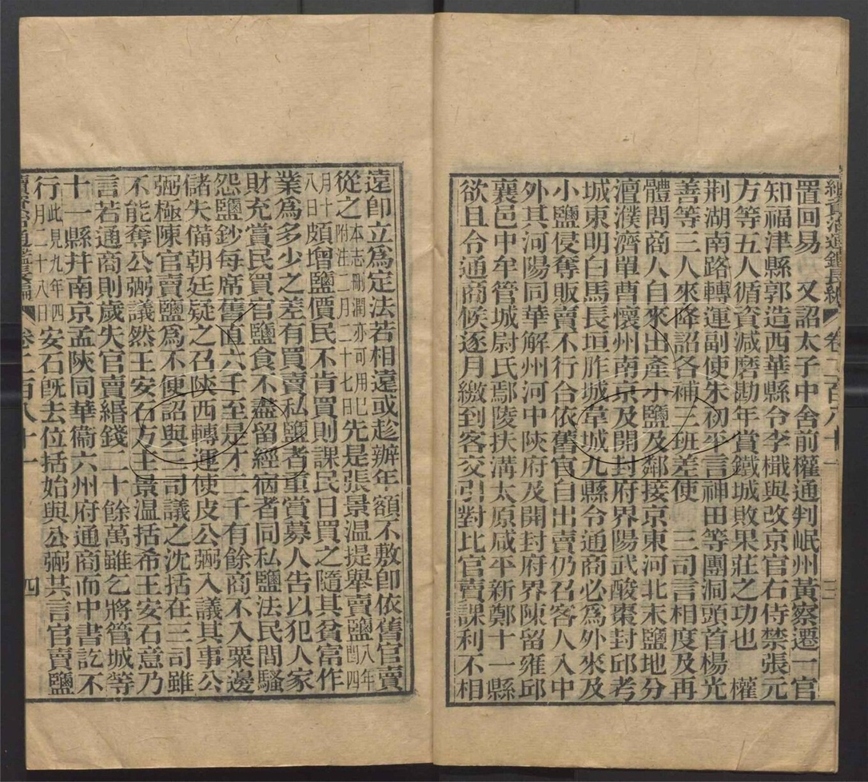 續資治通鑑長編 卷二百八十一 三
置回易　又詔太子中舍前權通判岷州黃察遷一官
知福津縣郭造西華縣令李楲與改京官右侍禁張元
方等五人循資減磨勘年賞鐵城敗果莊之功也　權
荆湖南路轉運副使朱初平言神田等團洞頭首楊光
善等三人來降詔各補三班差使　三司言相度及再
體問商人自來出產小鹽及鄰接京東河北末鹽地分
澶濮濟單曹懷州南京及開封府界陽武酸棗封邱考
城東明白馬長垣胙城韋城九縣令通商必爲外來及
小鹽侵奪販賣不行合依舊官自出賣仍召客人入中
外其河陽同華解州河中陝府及開封府界陳留雍邱
襄邑中牟管城尉氏鄢陵扶溝太原咸平新鄭十一縣
欲且令通商候逐月繳到客交引對比官賣課利不相
遠卽立爲定法若相遠或趁辦年額不敷卽依舊官賣
從之本志剛潤亦可用八年附注二月二十七日先是張景温提舉賣鹽八年閏四
月十八日頗增鹽價民不肯買則課民日買之隨其貧富作
業爲多少之差有買賣私鹽者重賞募人告以犯人家
財充賞民買官鹽食不盡留經宿者同私鹽法民間騷
怨鹽鈔每席舊直六千至是才二千有餘商不入粟邊
儲失備朝廷疑之召陝西轉運使皮公弼入議其事公
弼極陳官賣鹽爲不便詔與三司議之沈括在三司雖
不能奪公弼議然王安石方主景温括希王安石意乃
言若通商則歲失官賣緡錢二十餘萬雖乞將管城等
十一縣幷南京孟陝同華衞六州府通商而中書訖不
行此見九年四月二十八日安石旣去位括始與公弼共言官賣鹽
續資治通鑑長編 卷二百八十一 四